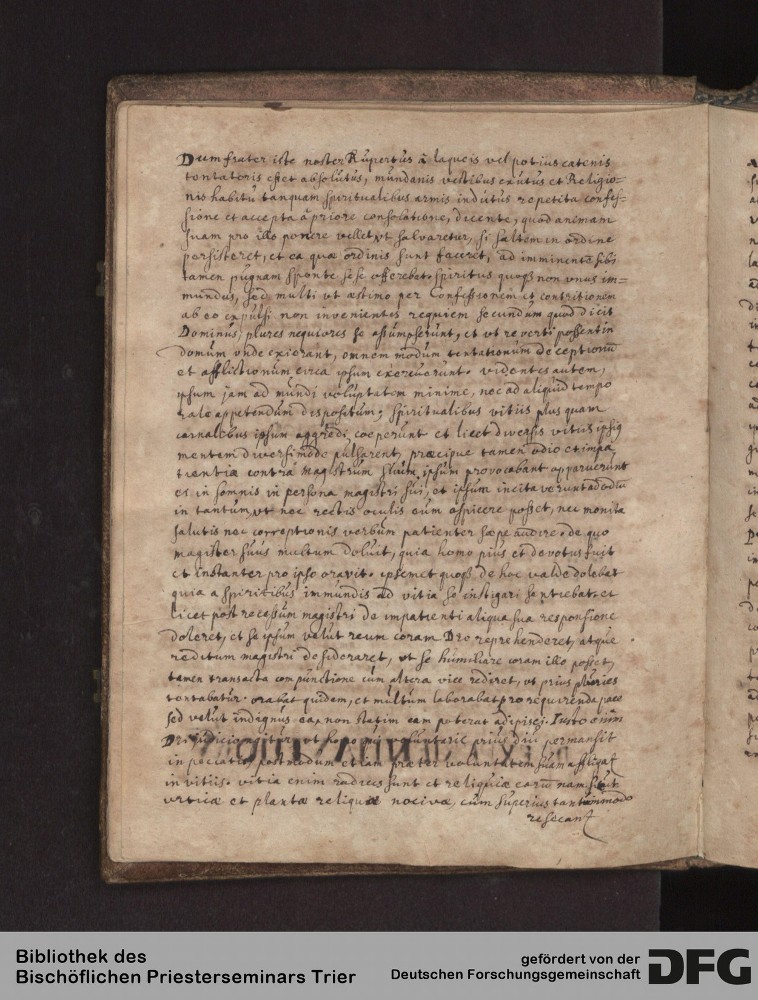 Dum frater iste noster Rupertus à laqueis vel potius catenis
tentatoris esset absolutus, mundanis vestibus exutus et Religio=
nis habitu tanquam spiritualibus armis indutus repetita confes=
sione et accepta à priore consolatione, dicente, quod animam
suam pro illo ponere vellet, ut salvaretur, si saltem in ordine
persisteret, et ea quæ ordinis sunt faceret, ad imminentē sibi
tamen pugnam sponte se se offerebat. Spiritus quoqȝ non unus im=
mundus, sed multi ut æstimo per Confessionem et contritionem
ab eo expulsi non invenientes requiem secundum quod dicit
Dominus, plures nequiores se assumpserunt, et ut reverti possent in
domum unde exierant, omnem modum tentationum deceptionū
et afflictionum circa ipsum exercuerunt. videntes autem,
ipsum jam ad mundi voluptatem minime, nec ad aliquid tempo
rale appetendum dispositum, spiritualibus vitiis plus quam
carnalibus ipsum aggredi cœperunt et licet diversis vitiis ipsiꝰ
mentem diversimode pulsarent, præcipue tamen odio et impa
tientia contra magistrum suum ipsum provocabant apparuerunt
ei in somnis in persona magistri sui, et ipsum incitaverunt ad odiū
in tantum, ut nec rectis oculis eum aspicere posset, nec monita
salutis nec correptionis verbum patienter sæpe audire. de quo
magister suus multum doluit, quia homo pius et devotus fuit
et instanter pro ipso oravit. ipsemet quoqȝ de hoc valde dolebat
quia a spiritibus immundis ad vitia se instigari sentiebat. et
licet post recessum magistri de impatienti aliqua sua responsione
doleret, et se ipsum velut reum coram Deo reprehenderet, atque
reditum magistri desideraret, ut se humiliare coram illo posset,
tamen transacta compunctione cum altera vice rediret, ut prius pluries
tentabatur. orabat quidem, et multum laborabat pro requirenda pace
sed velut indignus ea, non statim eam poterat adipisci. Iusto enim
Dei judicio igitur ut homo qui voluntarie prius diu permansit
in peccatis, postmodum etiam præter voluntatem suam affligat
in vitiis. vitia enim radices sunt et reliquiæ earū nam sicut
urticæ et plantæ reliquæ nocivæ, cum superius tantummodo
resecant
Bibliothek des
Bischöflichen Priesterseminars Trier
gefördert von der
Deutschen Forschungsgemeinschaft
DFG